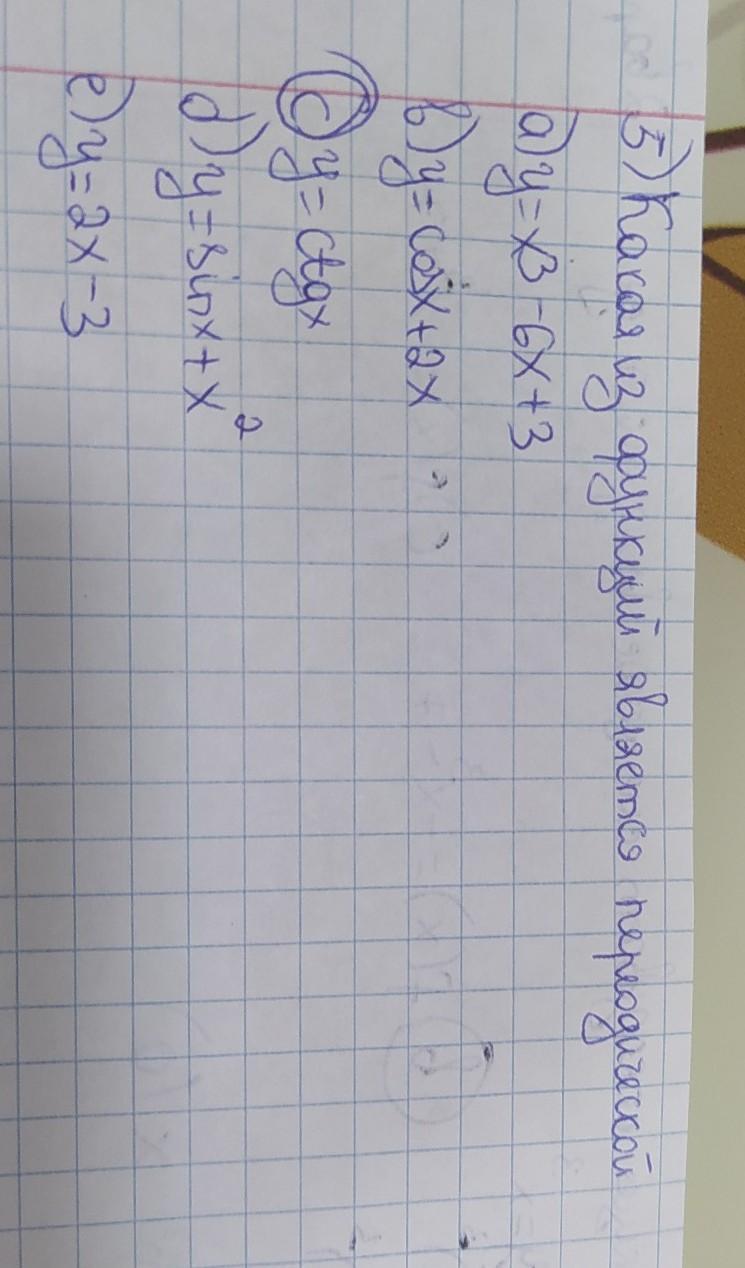 5) Какая из функций является периодической
a) y = x3 - 6x + 3
b) y = cosx + 2x
c) y = ctgx
d) y = sinx + x²
e) y = 2x - 3